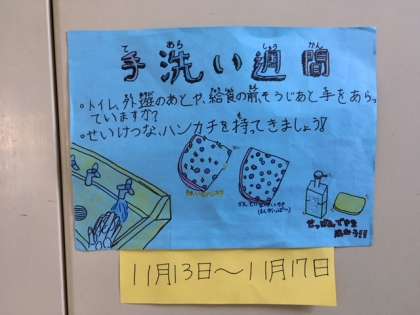 て あら しゅう かん
手洗い週間
・トイレ、外遊のあとや、給食の前、そうじあと手をあらっ
ていますか?
・せいけつな、ハンカチを持てきましょう!
せっけんで手を
11月13日〜11月17日